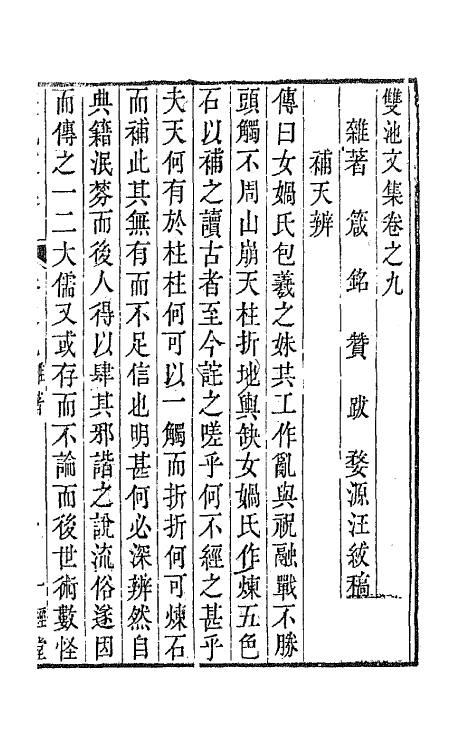 雙池文集卷之九
雜著 箴 銘 贊 跋 婺源汪紱稿
補天辨
傳曰女媧氏包羲之妹共工作亂與祝融戰不勝
頭觸不周山崩天柱折地輿缺女媧氏作煉五色
石以補之讀古者至今詫之嗟乎何不經之甚乎
夫天何有於柱柱何可以一觸而折折何可煉石
而補此其無有而不足信也明甚何必深辨然自
典籍泯棼而後人得以肆其邪諧之說流俗遂因
而傳之一二大儒又或存而不論而後世術數怪